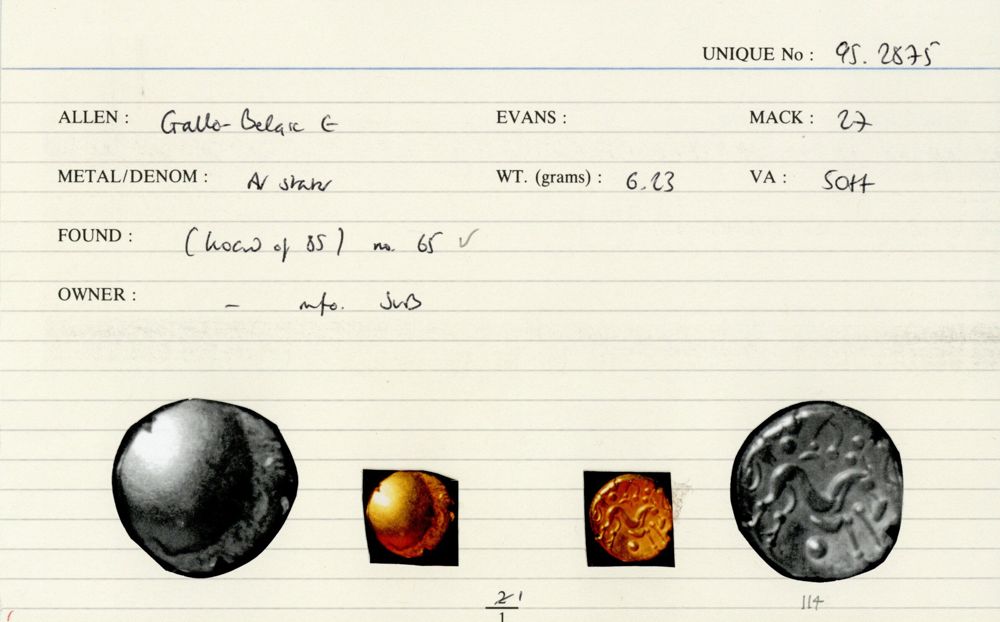 UNIQUE No : 95.2875
ALLEN : Gallo-Belgic E EVANS : MACK : 27
METAL/DENOM : AV stater WT. (grams) : 6.23 VA : 50++
FOUND : (hoard of 85) no. 65 ✓
OWNER : – info. JVB
1
1
114